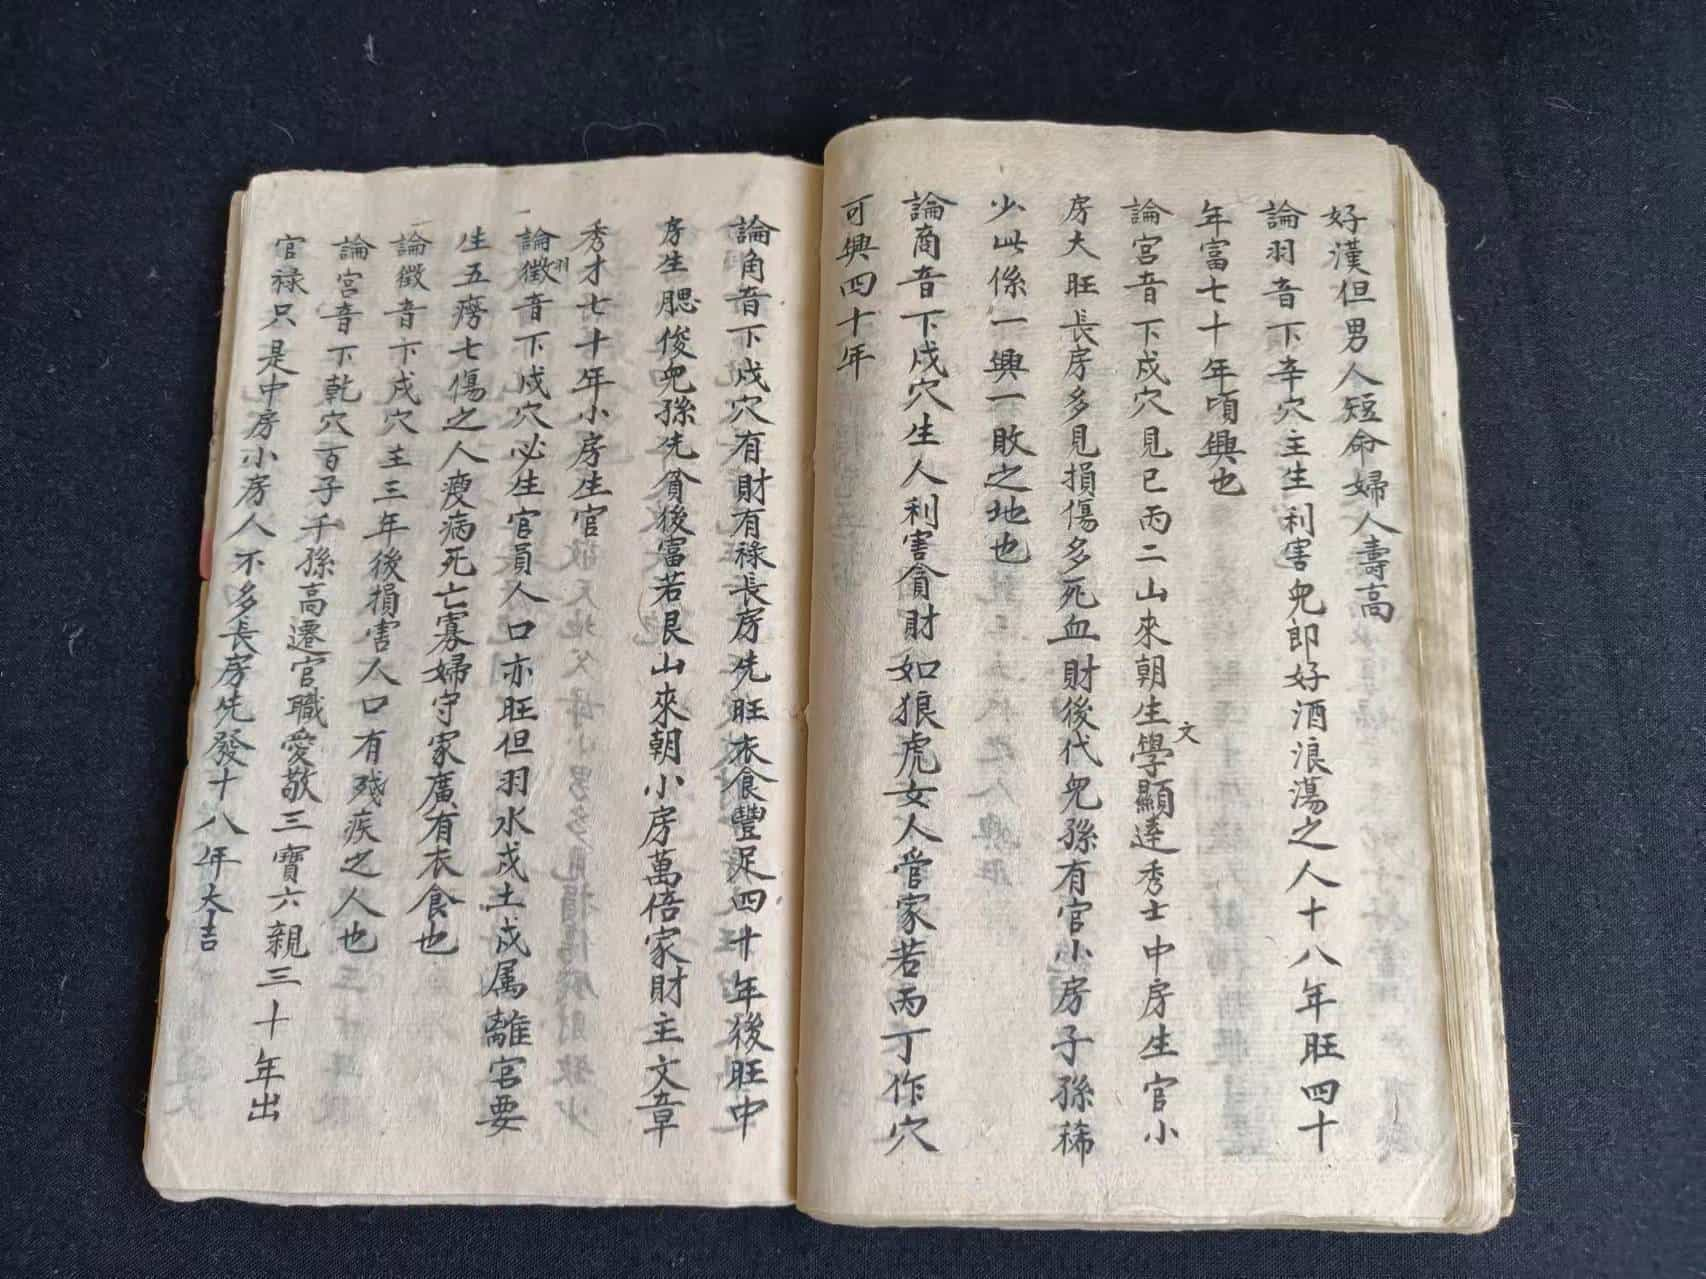 好漢但男人短命婦人壽高
論羽音下辛穴主生利害兒郎好酒浪蕩之人十八年旺四十
年富七十年頃興也
論宮音下戍穴見已丙二山來朝生文學顯達秀士中房生官小
房大旺長房多見損傷多死血財後代兒孫有官小房子孫稀
少此係一興一敗之地也
論商音下戍穴生人利害貪財如狼虎女人管家若丙丁作穴
可興四十年
論角音下戍穴有財有祿長房先旺衣食豐足四十年後旺中
房生腮俊兒孫先貧後富若艮山來朝小房萬倍家財主文章
秀才七十年小房生官
論徵羽音下戍穴必生官員人口亦旺但羽水戍土戍属離宮要
生五癆七傷之人瘦病死亡寡婦守家廣有衣食也
論徵音下戍穴主三年後損害人口有殘疾之人也
論宮音下乾穴百子千孫高遷官職愛敬三寶六親三十年出
官禄只是中房小房人不多長房先發十八年大吉